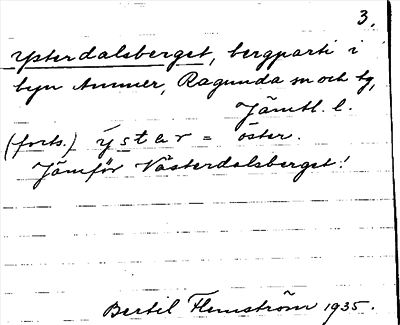 3.
Ysterdalsberget, bergparti i
byn Ammer, Ragunda sn och tg,
Jämtl. l.
(forts.) ýstar = öster.
Jämför Västerdalsberget!
Bertil Flemström 1935.